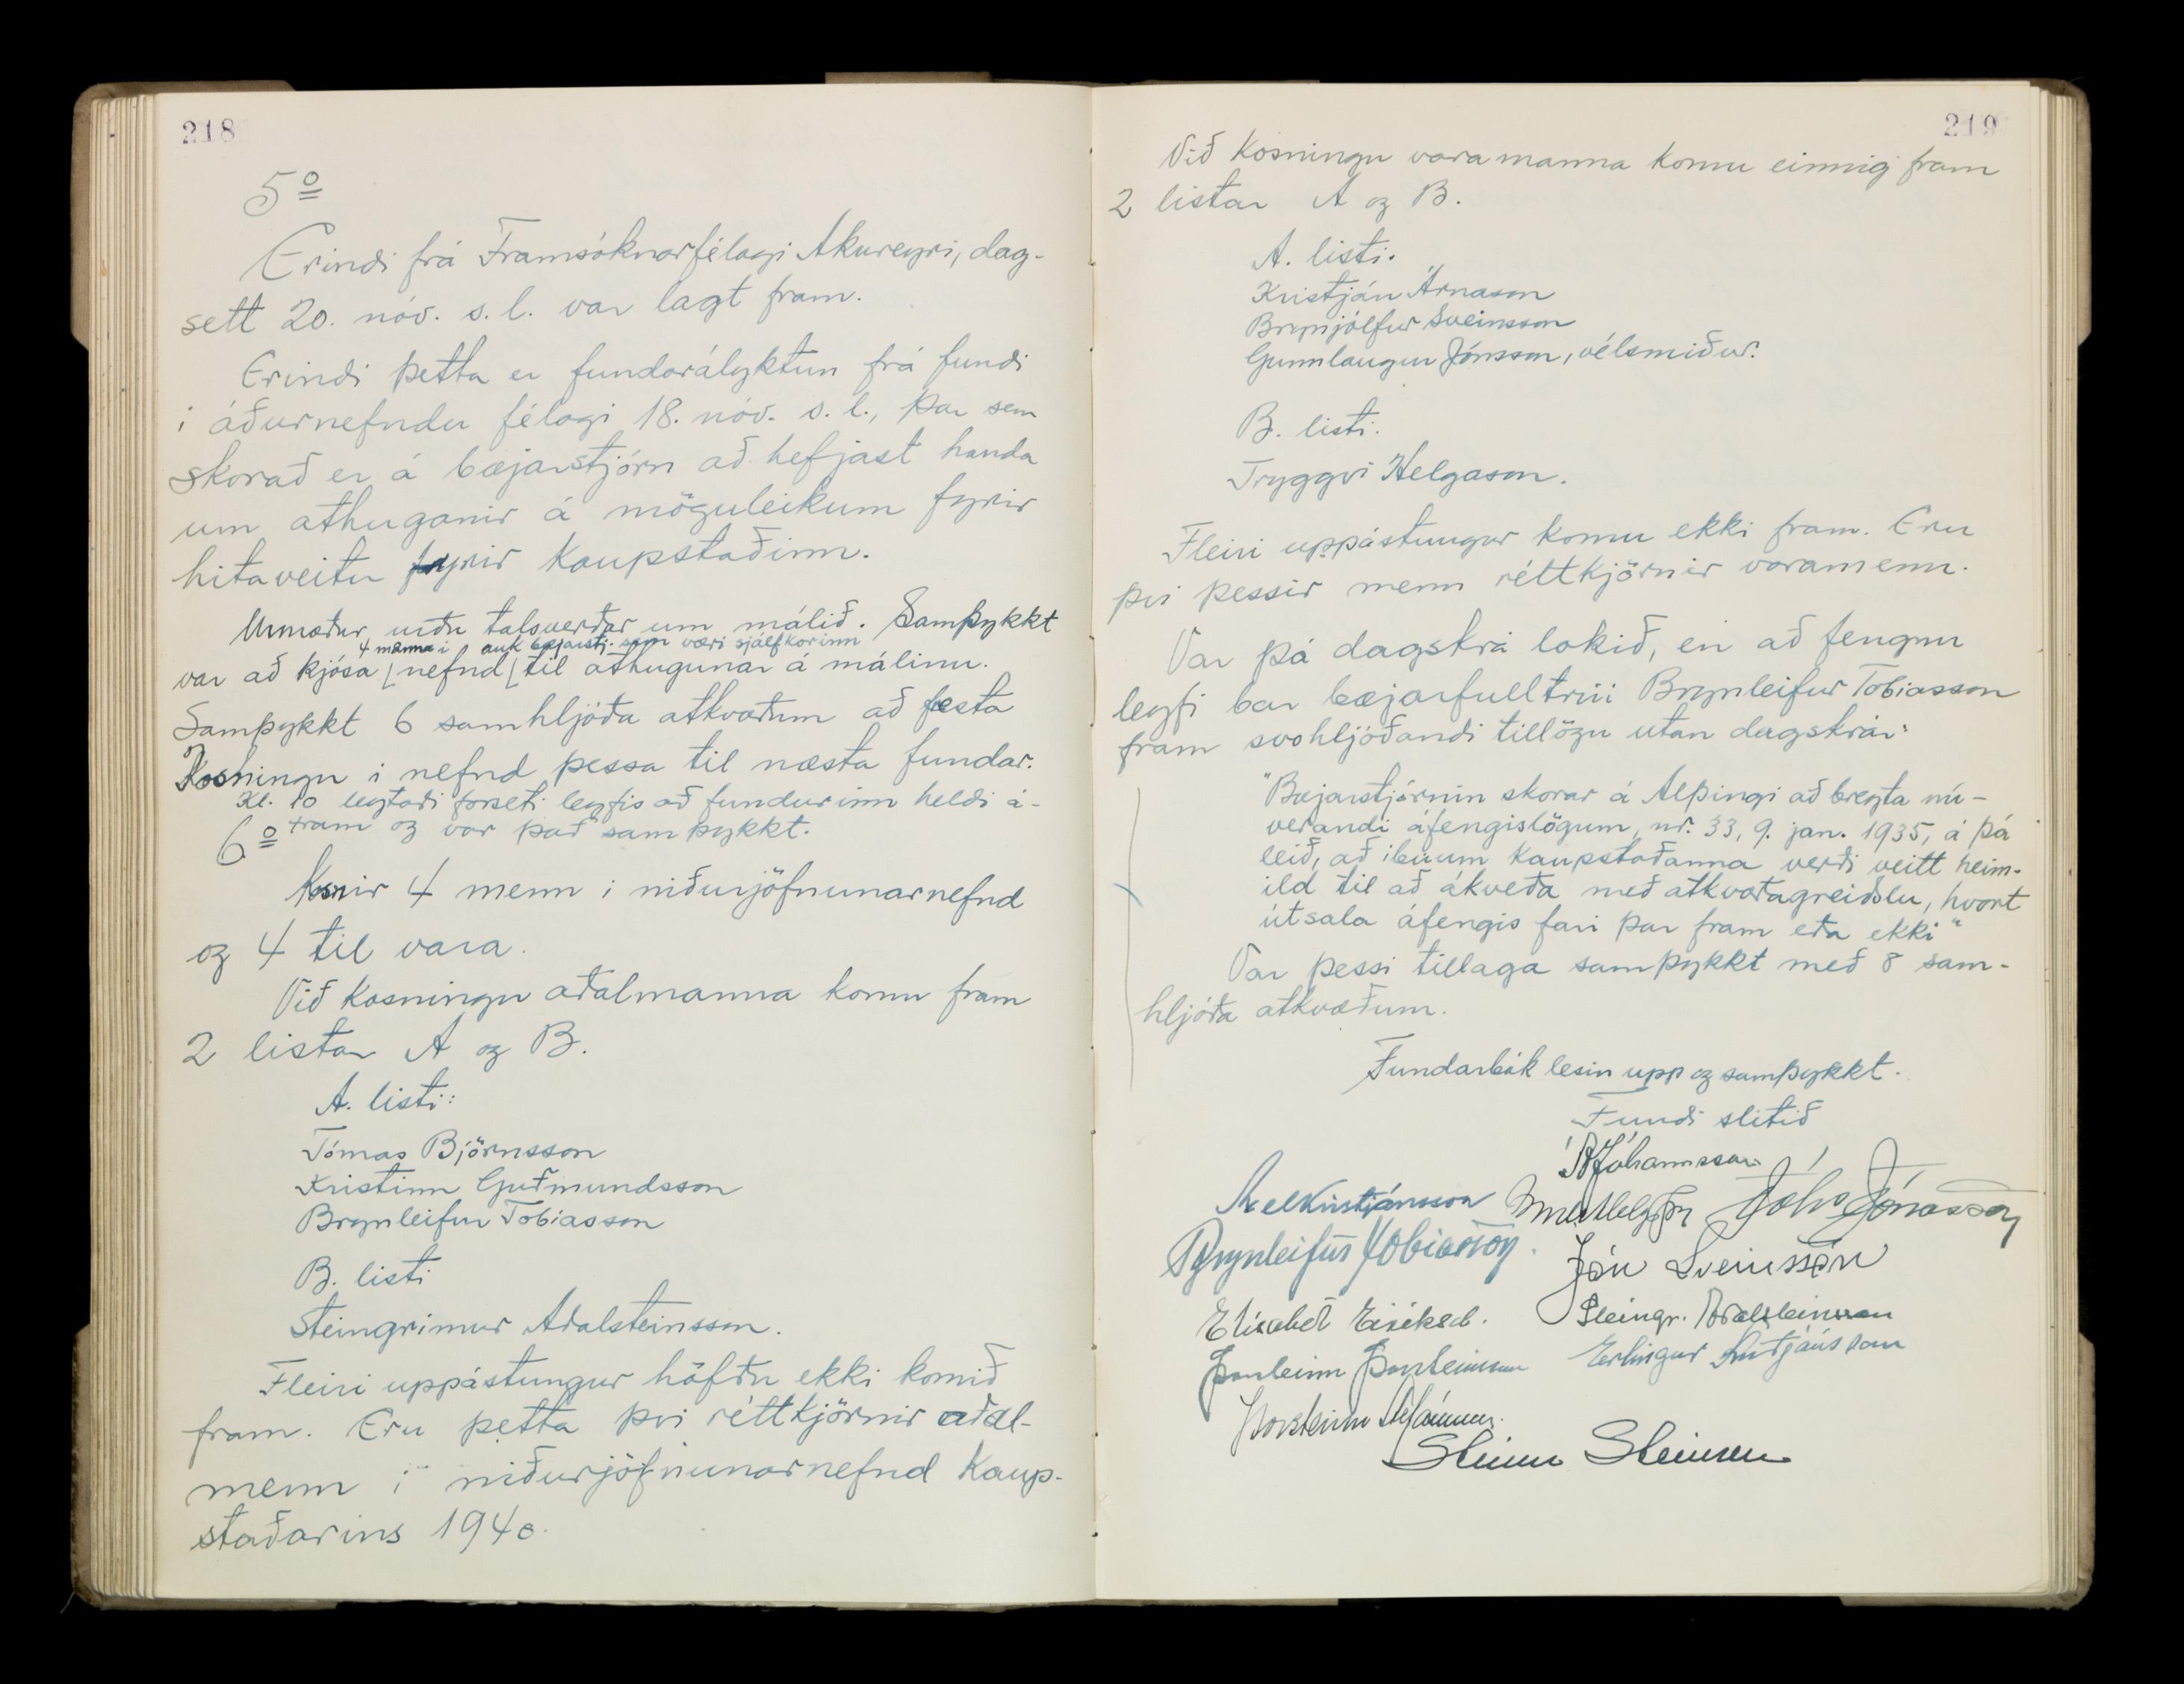 218
5º
Erindi frá Framsóknarfélagi Akureyri, dag-
sett 20. nóv. s.l. var lagt fram.
Erindi þetta er fundarályktun frá fundi
í áðurnefndu félagi 18. nóv. s.l., þar sem
skorað er á bæjarstjórn að hefjast handa
um athuganir á möguleikum fyrir
hitaveitu fyrir kaupstaðinn.
Umræður urðu talsverðar um málið. Samþykkt
4 manna í auk bæjarstj. sem væri sjálfkorinn
var að kjósa nefnd til athugunar á málinu.
Samþykkt 6 samhljóða atkvæðum að fresta
Kosningu í nefnd þessa til næsta fundar.
Kl. 10 leytaði forseti leyfis að fundurinn heldi á-
fram og var það samþykkt.
6º
Kosnir 4 menn í niðurjöfnunarnefnd
og 4 til vara.
Við kosningu aðalmanna komu fram
2 listar A og B.
A. listi:
Tómas Björnsson
Kristinn Guðmundsson
Brynleifur Tobiasson
B. listi
Steingrímur Aðalsteinsson.
Fleiri uppástungur höfðu ekki komið
fram. Eru þetta því réttkjörnir aðal-
menn í niðurjöfnunarnefnd Kaup-
staðarins 1940.
219
Við kosningu varamanna komu einnig fram
2 listar A og B.
A. listi.
Kristján Árnason
Brynjólfur Sveinsson
Gunnlaugur Jónsson, vélsmiður.
B. listi.
Tryggvi Helgason.
Fleiri uppástungur komu ekki fram. Eru
því þessir menn réttkjörnir varamenn.
Var þá dagskrá lokið, en að fengnu
leyfi bar bæjarfulltrúi Brynleifur Tobiasson
fram svohljóðandi tillögu utan dagskrár:
"Bæjarstjórnin skorar á Alþingi að breyta nú-
verandi áfengislögum, nr. 33, 9. jan. 1935, á þá
leið, að íbúum kaupstaðanna verði veitt heim-
ild til að ákveða með atkvæðagreiðslu, hvort
útsala áfengis fari þar fram eða ekki"
Var þessi tillaga samþykkt með 8 sam-
hljóða atkvæðum.
Fundarbók lesin upp og samþykkt.
Fundi slitið
Jóhannsson
Axel Kristjánsson Jóhs Jónasson
Brynleifur Tobiasson
Jón Sveinsson
Elísabet Eiríksd. Steingr. Aðalsteinsson
Þorsteinn Þorsteinsson Erlingur Friðjónsson
Þorsteinn Stefánsson.
Steinn Steinsen